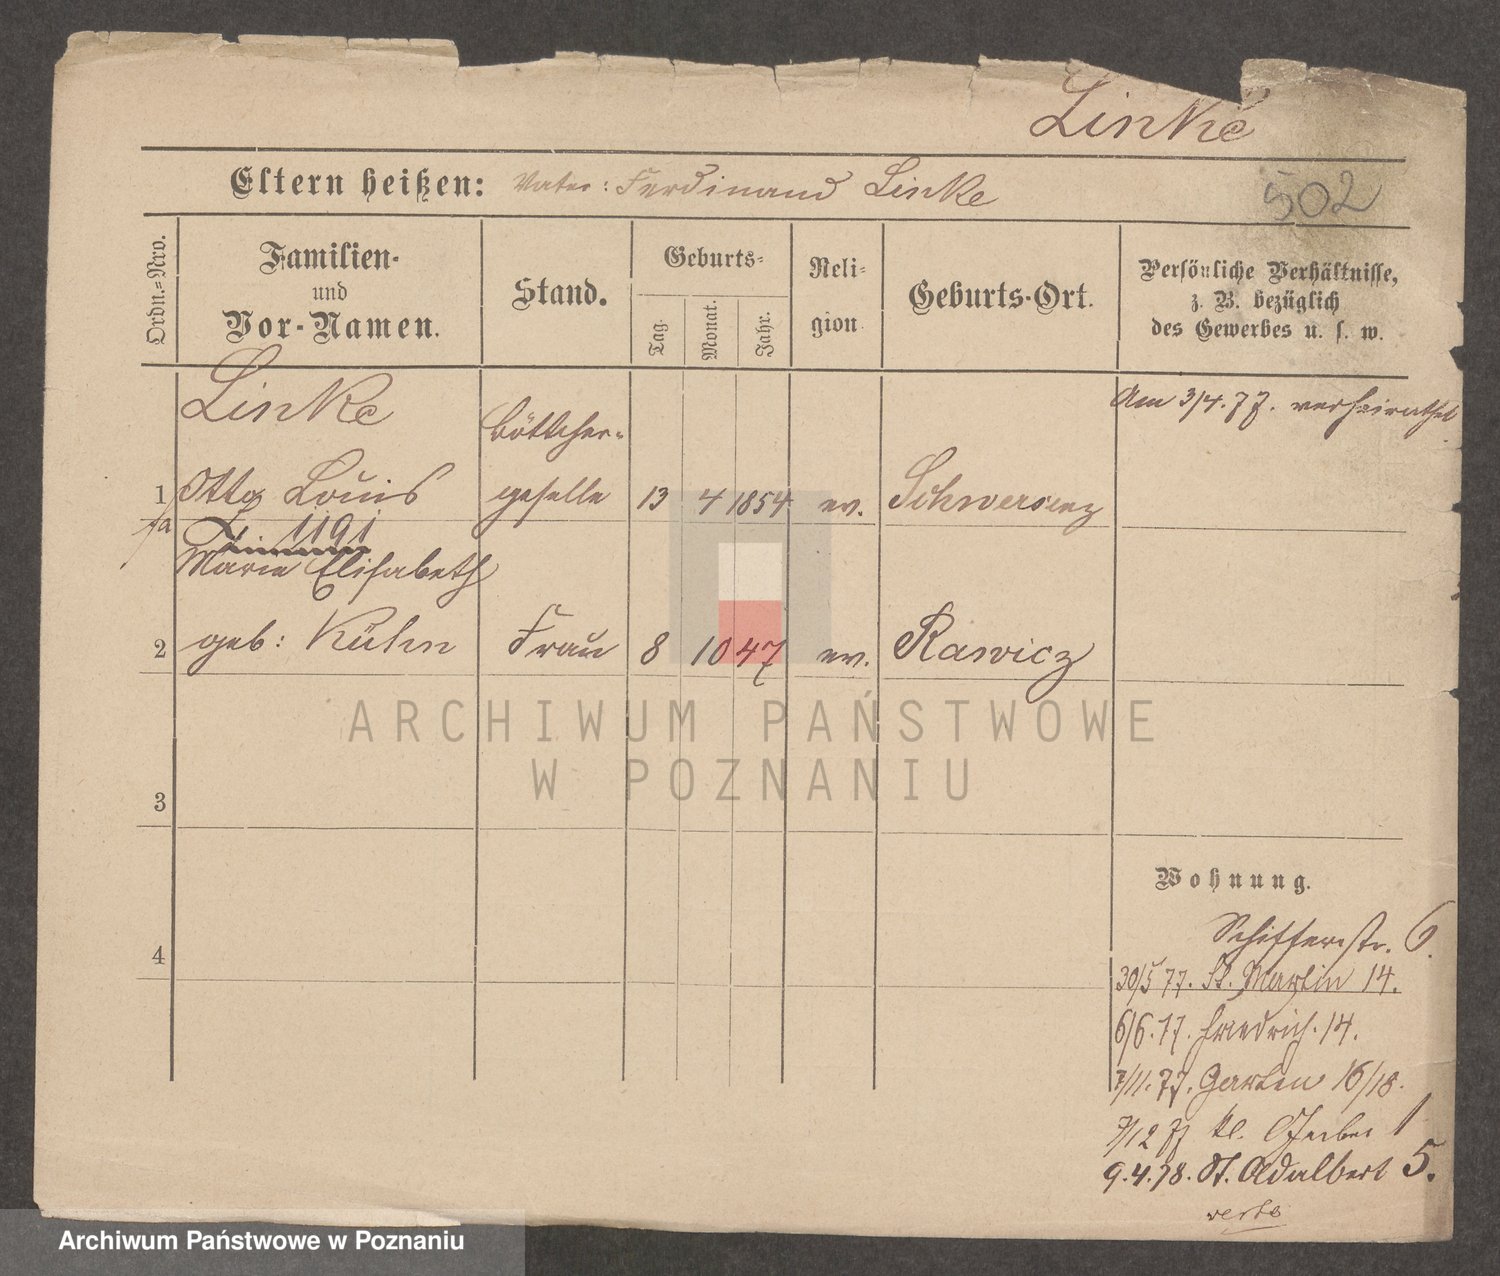 Linke
Eltern heißen: Vater: Ferdinand Linke
502
Ordn.=Nro.
Familien-
und
Vor-Namen.
Stand.
Geburts-
Tag.
Monat.
Jahr.
Reli-
gion.
Geburts-Ort.
Persönliche Verhältnisse,
z. B. bezüglich
des Gewerbes u. s. w.
Linke
Böttcher-
Am 3/4.77. verheirathet
1 Otto Louis geselle 13 4 1854 ev. Schwersenz
1191
Marie Elisabeth
2 geb: Kühn Frau 8 10 47 ev. Rawicz
3
4
ARCHIWUM PAŃSTWOWE
W POZNANIU
Wohnung.
Schifferstr. 6.
30/5 77. St. Martin 14.
6/6.77. Friedrich. 14.
7/11.77. Garten 16/18.
7/12 77 kl. Gerber 1
9.4.78. St. Adalbert 5.
verte
Archiwum Państwowe w Poznaniu